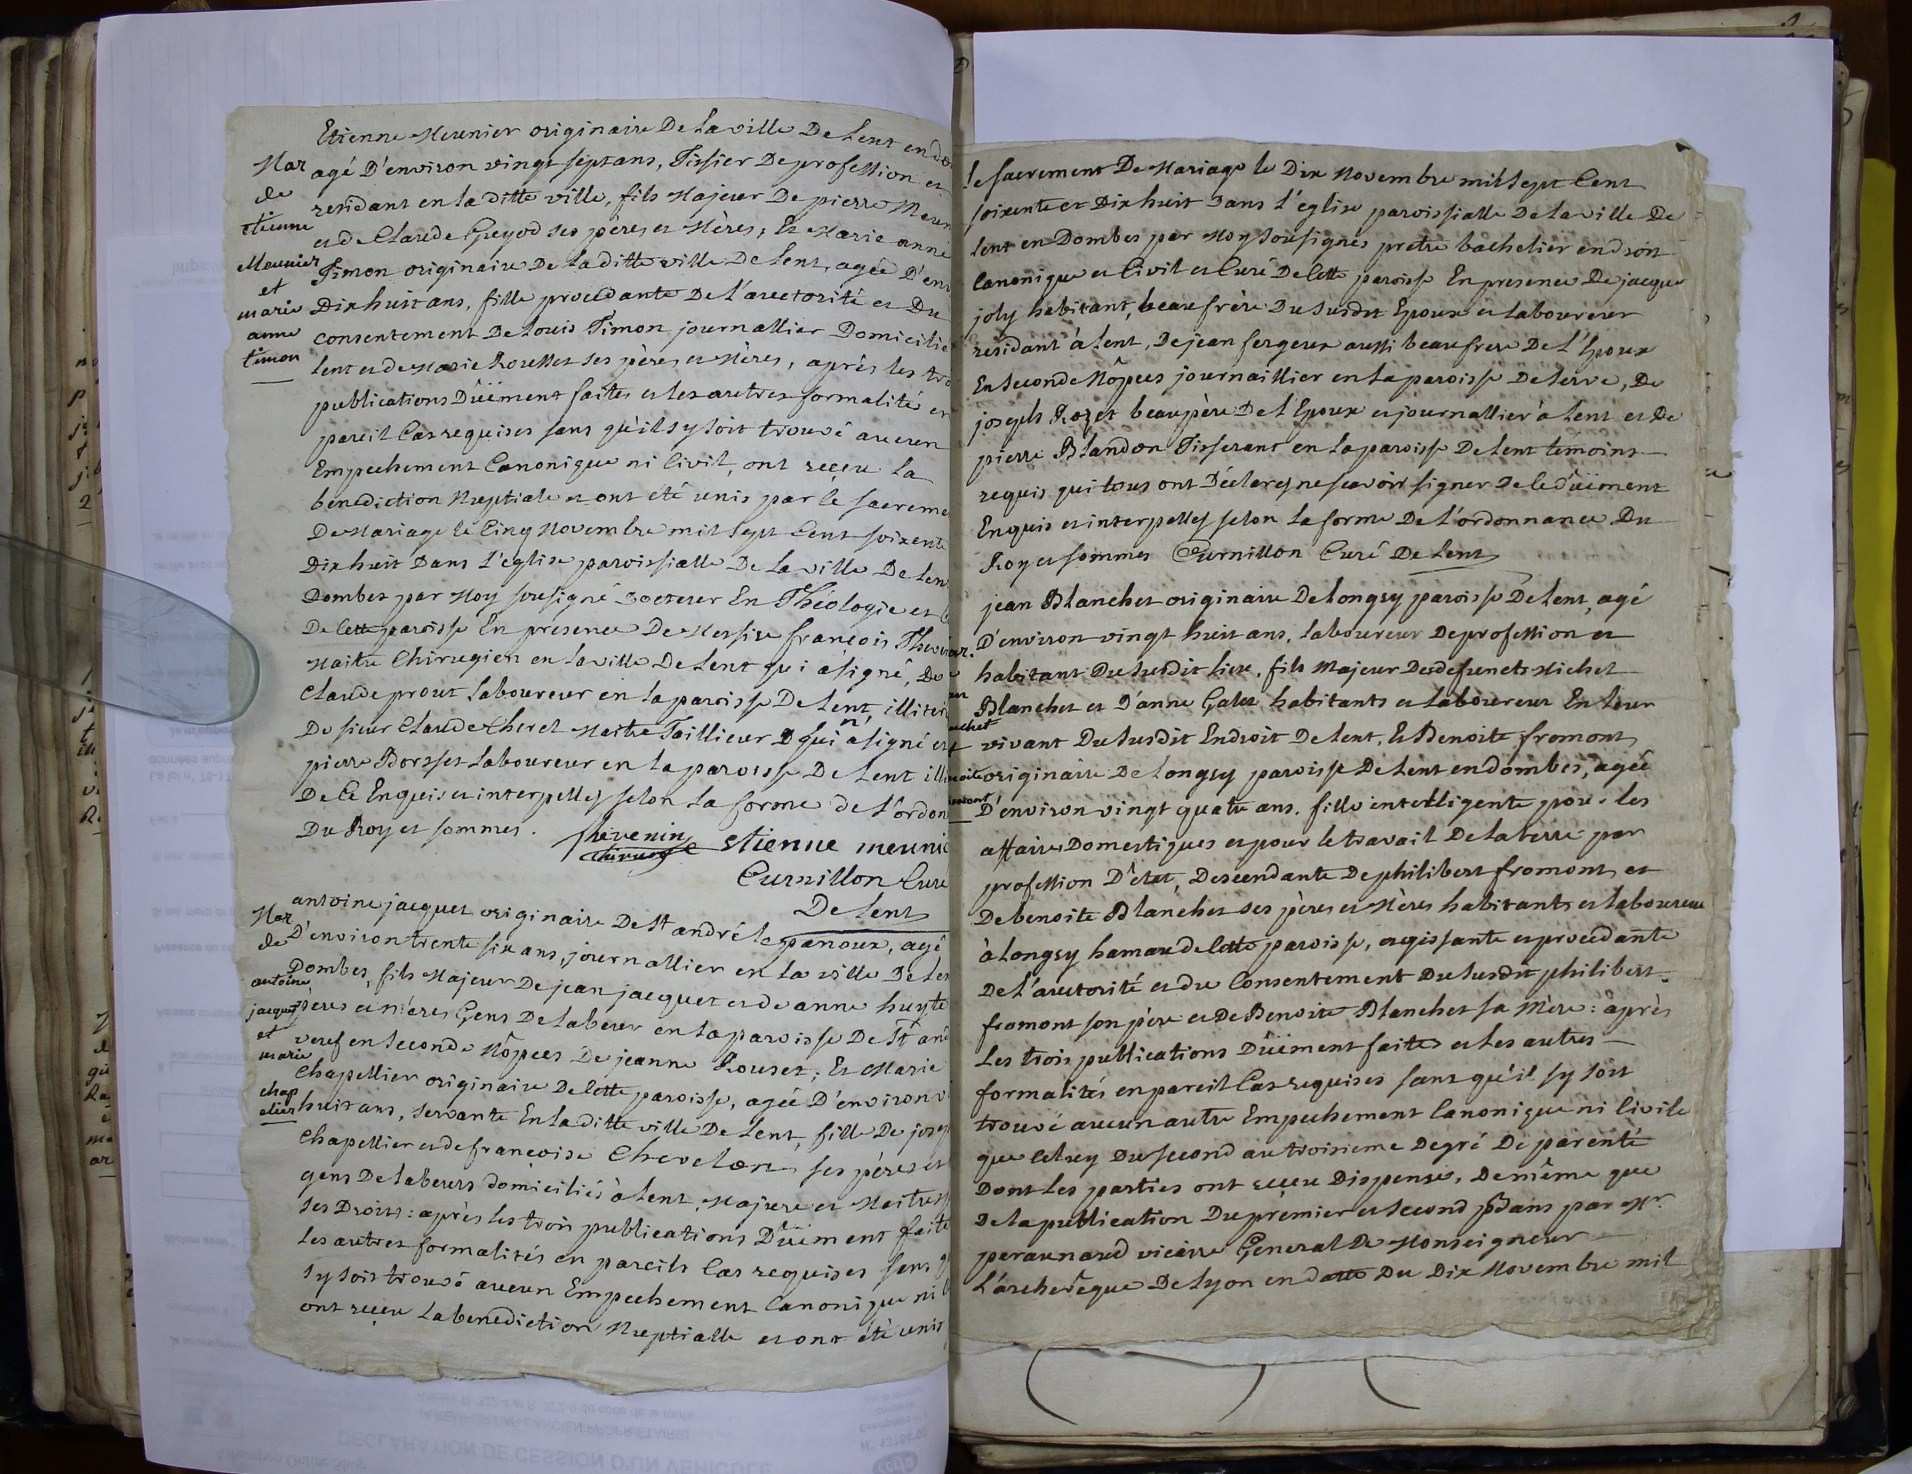 Etienne Meunier originaire De La ville De Lent en
Mar
de
etienne
Meunier
et
marie
anne
timon
agé D'environ vingt sept ans, Tissier De profession et
residant en la ditte ville, fils Majeur De pierre
et de Claude Goyod ses pères et Mères, Et Marie anne
Timon originaire De la ditte ville De Lent, agée
Dix huit ans, fille procedante De l'auctorité et Du
consentement De Louis Timon journallier Domicilié
Lent et de Marie Rousset ses pères et Mères, après les
publications Dûëment faites et les autres formalité en
pareil Cas requises sans qu'il sy soit trouvé aucun
Empechement Canonique ni Civil, ont reçeu La
benediction Nuptiale et ont été unis par le
De Mariage le Cinq Novembre mil Sept Cent soixente
Dix huit Dans L'eglise paroissialle De la ville De
Dombes par Moy sousigné Docteur En Théologie et
De Cette paroisse En présence De Messire françois
Maitre Chirugien en la ville De Lent qui a signé, De
Claude prout Laboureur en la paroisse De Lent,
De sieur Claude Cheret Maitre Taillieur qui n'a signé et
pierre Borsset Laboureur en la paroisse De Lent
De Ce Enquis et interpelles selon La forme de L'
Du Roy et sommes.
thevenin
Chirurg
etienne
Curnillon Curé
De Lent
Mar
de
antoine
jacquet
et
marie
chap
elier
antoine jacquet originaire De St andré le panoux, agé
D'environ trente six ans, journallier en La ville De
Dombes, fils Majeur De jean jacquet et de anne
pères et mères Gens De labeur en la paroisse De St
veuf en Seconde Nôpces De jeanne Rouset; Et Marie
Chapellier originaire De Cette paroisse, agée D'environ
huit ans, servante En la ditte ville De Lent, fille De
Chapellier et de francoise Chevelon, ses pères et
gens De labeurs domiciliés à Lent, Majeure et
ses Droits: après les trois publications Dûëment
Les autres formalités en pareils Cas requises sans
sy soit trouvé aucun Empechement Canonique ni
ont reçeu La benediction Nuptialle et ont été unis
le sacrement De Mariage le Dix Novembre mil Sept Cent
soixente et Dix huit Dans L'eglise paroissialle De la ville De
Lent en Dombes par Moy Sousignés pretre bachelier en droit
Canonique et Civil et Curé De Cette paroisse En presence De jacque
joly habitant, beau frère Du Susdit Epoux et Laboureur
residant à Lent, De jean fergeux aussi beau frere De L'Epoux
En Seconde Nôpces journaillier en la paroisse De Serve, De
joseph Rozet beaupère De L'Epoux et journallier à Lent et De
pierre Blandon Tisserant en la paroisse De Lent temoins
requis qui tous ont Déclarés ne scavoir signer De Ce dûëment
Enquis et interpelles selon la forme De L'ordonnance Du
Roy et sommes Curnillon Curé De Lent
jean Blanchet originaire De Longsy paroisse De Lent, agé
D'environ vingt huit ans, Laboureur De profession et
habitant Du Susdit lieu, fils Majeur Des defuncts Michel
Blanchet et D'anne Galet habitants et Laboureur En Leur
vivant Du Susdit Endroit De Lent, Et Benoite fromont
originaire De Longsy paroisse De Lent en dombes, agée
D'environ vingt quatre ans, fille intelligente pour les
affaires Domestiques et pour le travail De la terre par
profession D'état, Descendante De philibert fromont et
De benoite Blanchet ses pères et Mères habitants et laboureur
à Longsy hameau de Cette paroisse, et gissante et procedante
De L'auctorité et du Consentement Du Susdit philibert
fromont son père et De Benoite Blanchet sa Mère: après
Les trois publications Dûëment faites et Les autres
formalités en pareil Cas requises sans qu'il sy soit
trouvé aucun autre Empechement Canonique ni Civile
que Celuy Du Second au troisieme Degré De parenté
Dont Les parties ont reçeu Dispense, De même que
De la publication Du premier et Second Bans par Mr.
vicaire General De Monseigneur
L'archevêque De Lyon en datte Du Dix Novembre mil